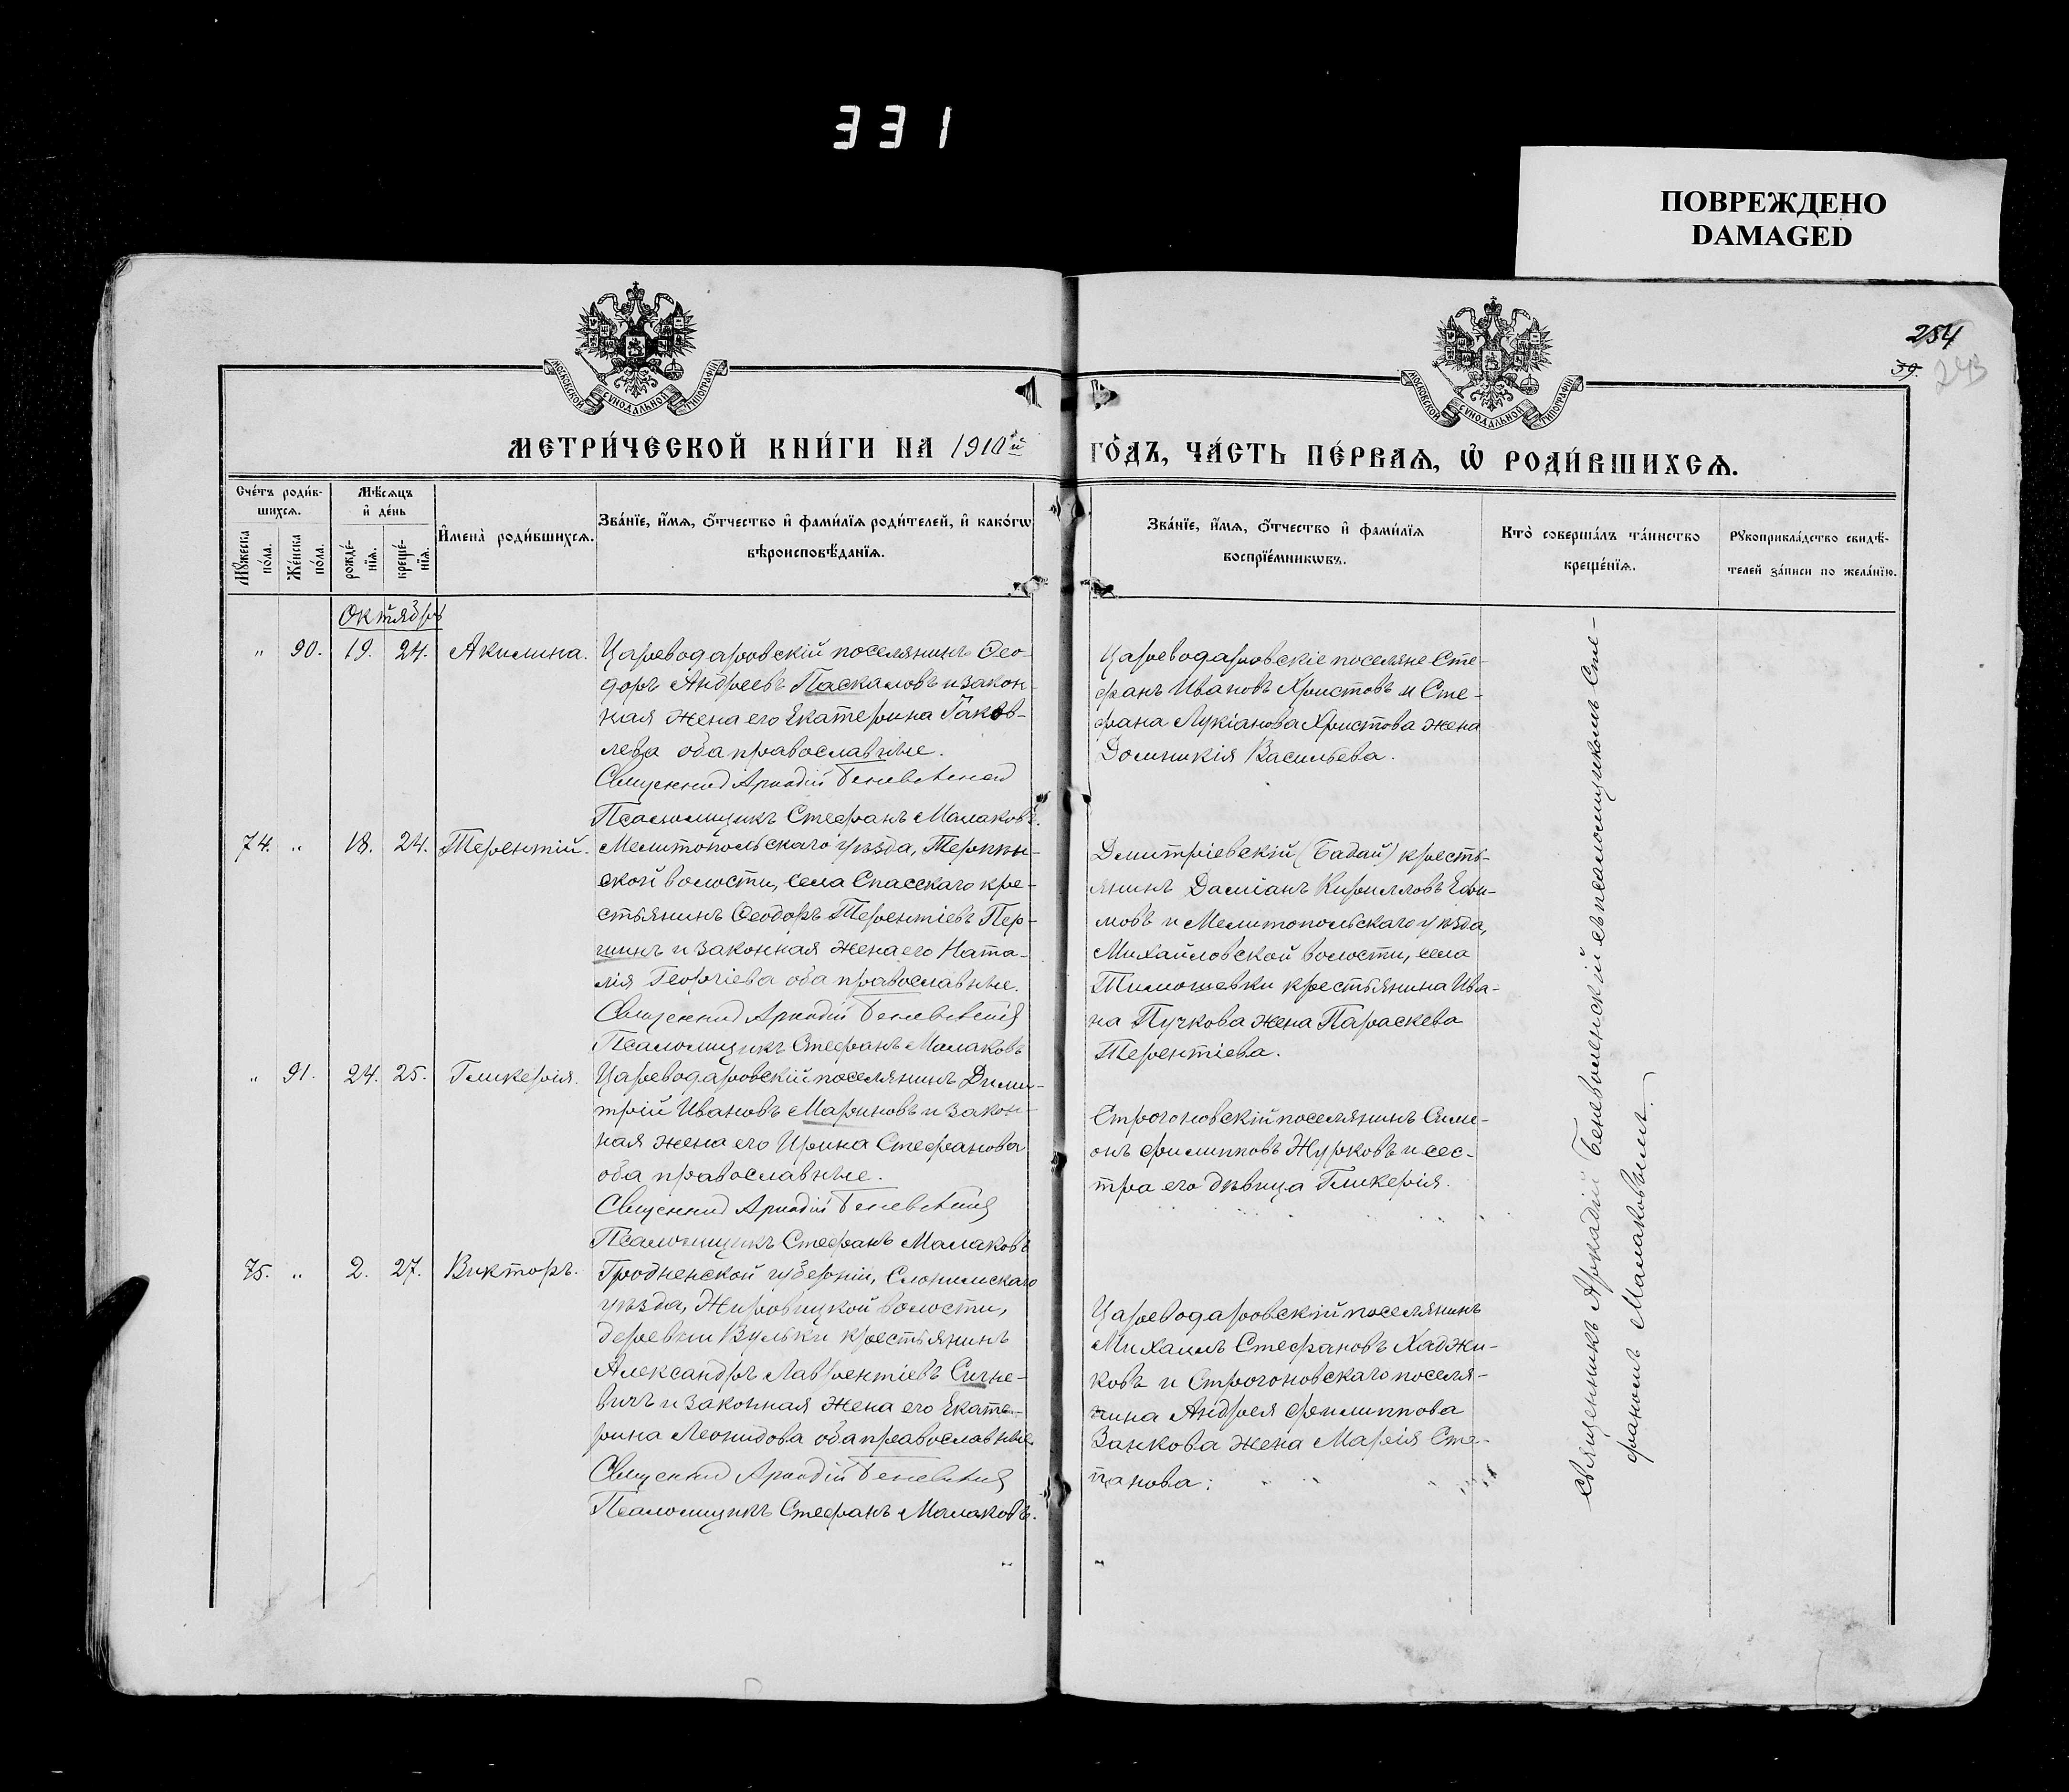 331
ПОВРЕЖДЕНО
DAMAGED
254
39.
243
МОСКОВСКОЙ СУНОДАЛЬНОЙ ТИПОГРАФІИ
МОСКОВСКОЙ СУНОДАЛЬНОЙ ТИПОГРАФІИ
МЕТРИ́ЧЕСКОЙ КНИ́ГИ НА 1910й
ГО́ДЪ, ЧА́СТЬ ПЕ́РВАѦ, Ѡ҆ РОДИ́ВШИХСѦ.
Сче́тъ роди́в-
шихсѧ.
Мꙋжеска
по́ла.
Же́нска
по́ла.
Мѣ́сѧцъ
и҆ де́нь
рожде́-
нїѧ.
креще́-
нїѧ.
И҆мена̀ роди́вшихсѧ.
Зва́нїе, и҆́мѧ, ѻ҆́тчество и҆ фами́лїѧ роди́телей, и҆ како́гѡ
вѣроисповѣ́данїѧ.
Зва́нїе, и҆́мѧ, ѻ҆́тчество и҆ фами́лїѧ
воспрїе́мникѡвъ.
Кто̀ соверша́лъ та́инство
креще́нїѧ.
Рꙋкоприкла́дство свидѣ́-
телей за́писи по жела́нїю.
Октябрь
" 90. 19. 24. Акилина.
Царeводаровскій поселянинъ Ѳео-
доръ Андреевъ Паскаловъ и закон-
ная жена его Екатерина Іаков-
лева оба православные.
Священник Аркадій Беневоленскій
Псаломщикъ Стефанъ Малаковъ.
Царeводаровскіе поселяне Сте-
фанъ Ивановъ Христовъ и Сте-
фана Лукіанова Христова жена
Домникія Васильева.
74. " 18. 24. Терентій.
Мелитопольскаго уѣзда, Терпѣн-
ской волости, села Спасскаго кре-
стьянинъ Ѳеодоръ Терентіевъ Пер-
шинъ и законная жена его Ната-
лія Георгіева оба православные.
Священник Аркадій Беневоленскій
Псаломщикъ Стефанъ Малаковъ
Дмитріевскій (Бадай) кресть-
янинъ Даміанъ Кирилловъ Ефи-
мовъ и Мелитопольскаго уѣзда,
Михайловской волости, села
Тимошевки крестьянина Ива-
на Пучкова жена Параскева
Терентіева.
" 91. 24. 25. Гликерія.
Царeводаровскій поселянинъ Дими-
трій Ивановъ Мариновъ и закон-
ная жена его Ирина Стефанова
оба православные.
Священник Аркадій Беневоленскій
Псаломщикъ Стефанъ Малаковъ
Строгоновскій поселянинъ Симе-
онъ Филипповъ Журковъ и сес-
тра его дѣвица Гликерія.
75. " 2. 27. Викторъ.
Гродненской губерніи, Слонимскаго
уѣзда, Жировицкой волости,
деревни Вульки крестьянинъ
Александръ Лаврентіевъ Сичне-
вичъ и законная жена его Екате-
рина Леонидова оба православные.
Священник Аркадій Беневоленскій
Псаломщикъ Стефанъ Малаковъ.
Царeводаровскій поселянинъ
Михаилъ Стефановъ Хаджи-
ковъ и Строгоновскаго поселя-
нина Андрея Филиппова
Занкова жена Марія Сте-
панова:
Священникъ Аркадій Беневоленскій съ псаломщикомъ Сте-
фаномъ Малаковымъ.